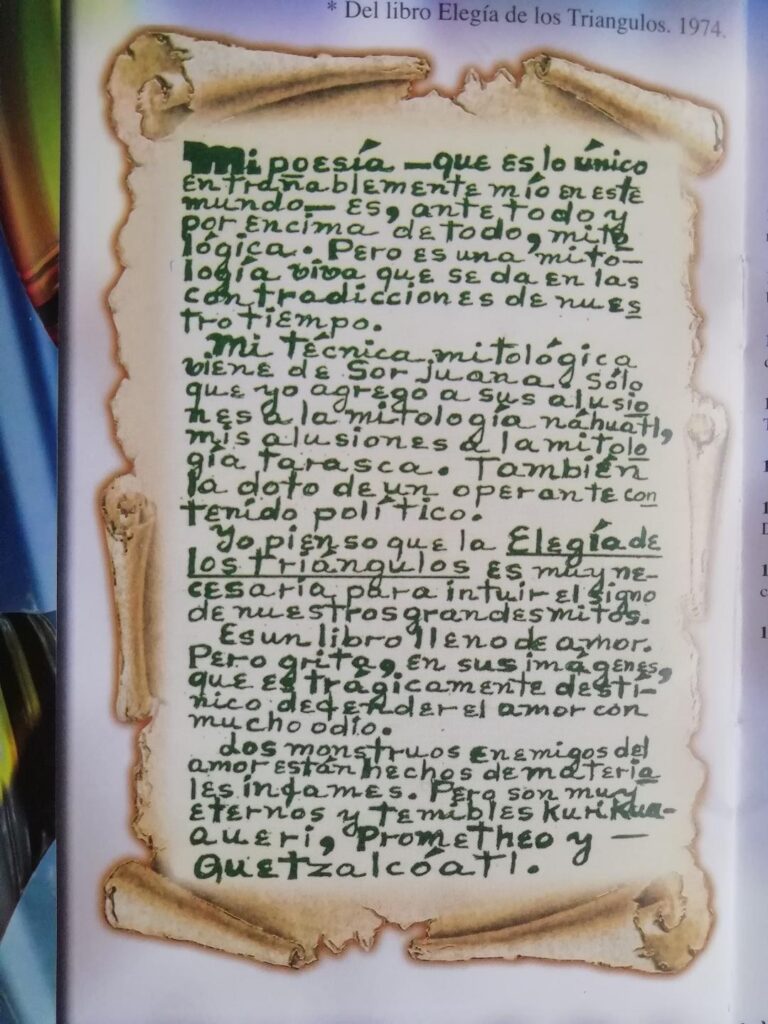 * Del libro Elegía de los Triangulos. 1974.
Mi poesía —que es lo único
entrañablemente mío en este
mundo— es, ante todo y
por encima de todo, mito
lógica. Pero es una mito-
logía viva que se da en las
contradicciones de nues
tro tiempo.
Mi técnica mitológica
viene de Sor Juana. Sólo
que yo agrego a sus alusio
nes a la mitología náhuatl,
mis alusiones a la mitolo
gía tarasca. También
la doto de un operante con
tenido político.
Yo pienso que la Elegía de
los triángulos es muy ne-
cesaria para intuir el signo
de nuestros grandes mitos.
Es un libro lleno de amor.
Pero grita, en sus imágenes,
que es trágicamente destí-
nico defender el amor con
mucho odio.
dos monstruos enemigos del
amor están hechos de materia
les ínfames. Pero son muy
eternos y temibles Kurikua-
aueri, Prometheo y —
Quetzalcóatl.